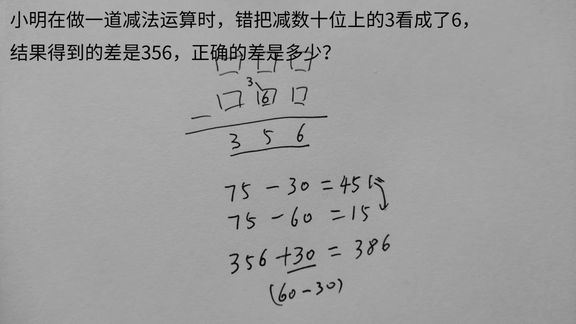 小明在做一道减法运算时，错把减数十位上的3看成了6，
结果得到的差是356，正确的差是多少？
3
— 6
3 5 6
75 - 30 = 45
75 - 60 = 15
356 + 30 = 386
(60-30)